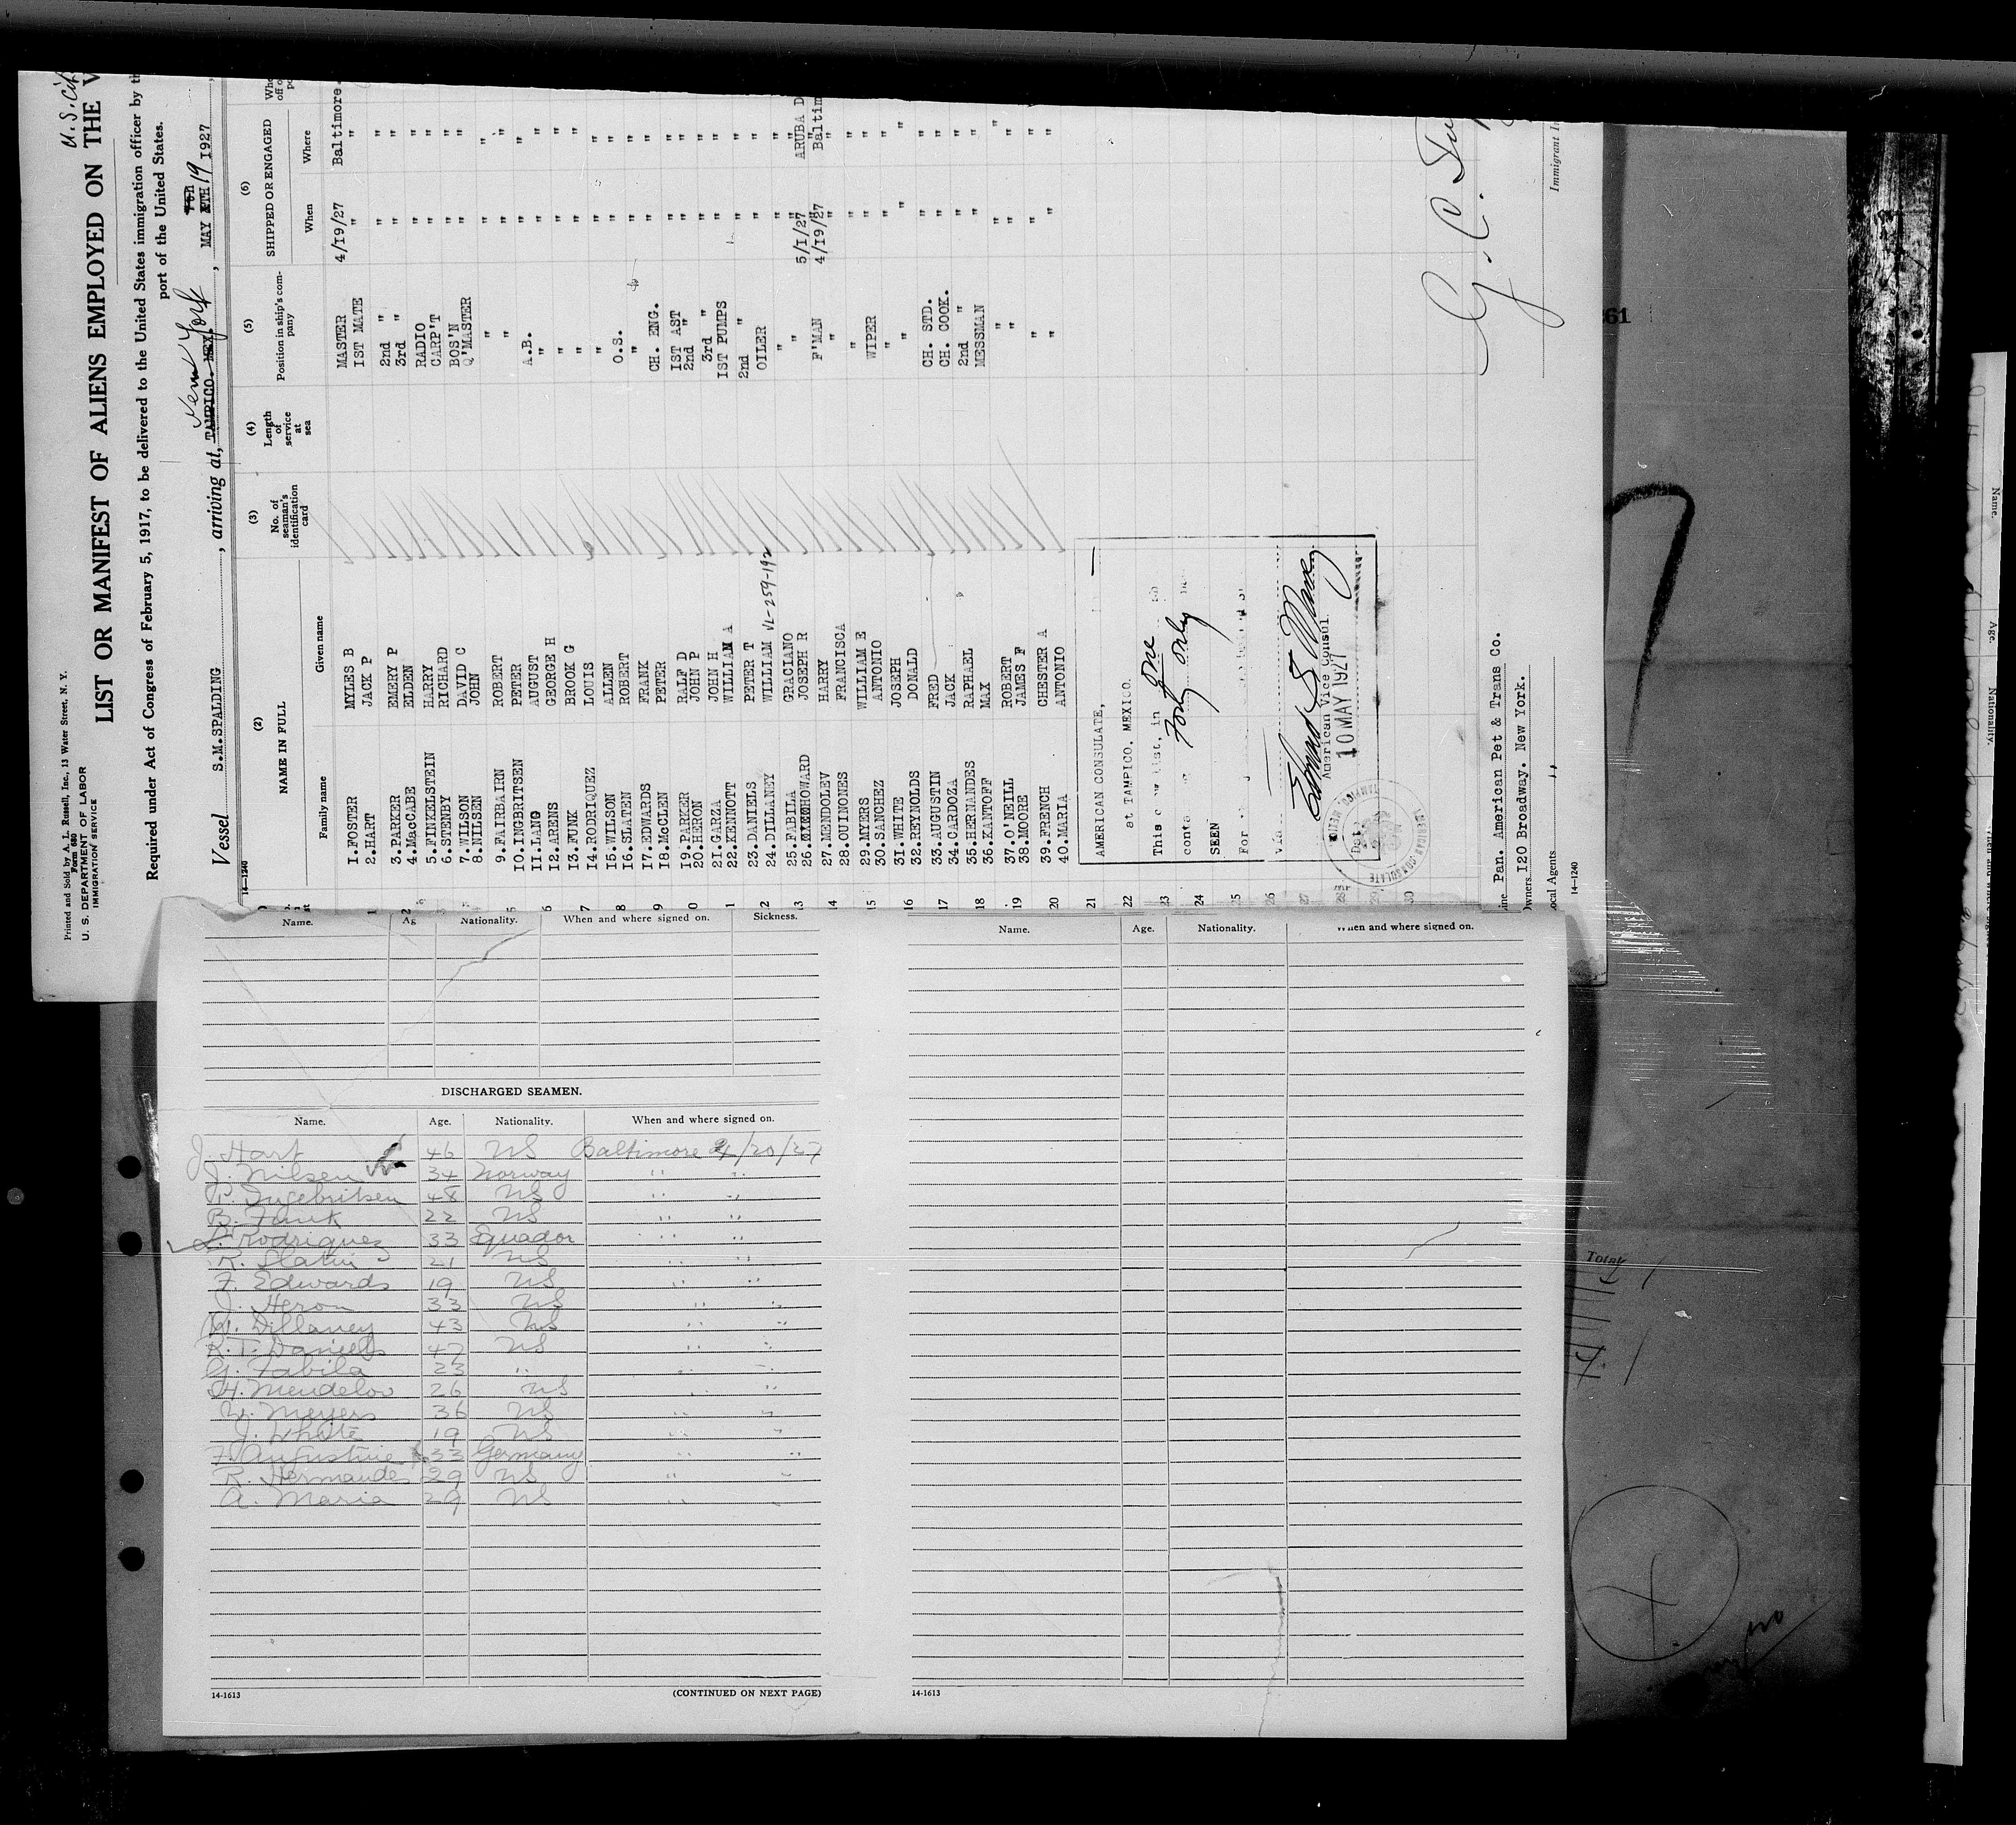 Printed and Sold by A. L. Russell, Inc., 13 Water Street, N. Y.
Form 680
U. S. DEPARTMENT OF LABOR
IMMIGRATION SERVICE
U.S. Cit
LIST OR MANIFEST OF ALIENS EMPLOYED ON THE V
Required under Act of Congress of February 5, 1917, to be delivered to the United States immigration officer by th
port of the United States.
Vessel S.M.SPALDING, arriving at, TAMPICO. MEX. New York, MAY 19 1927
14—1240
(2) (3) (4) (5) (6)
NAME IN FULL No. of seaman's identification card Length of service at sea Position in ship's company SHIPPED OR ENGAGED
Family name Given name When Where
1.FOSTER MYLES B MASTER 4/19/27 Baltimore.
2.HART JACK P 1ST MATE " "
3.PARKER EMERY P 2nd " " "
4.MacCABE ELDEN 3rd " " "
5.FINKELSTEIN HARRY RADIO " "
6.STENBY RICHARD CARP'T " "
7.WILSON DAVID C BOS'N " "
8.NILSEN JOHN Q'MASTER " "
9.FAIRBAIRN ROBERT " " "
10.INGBRITSEN PETER " " "
11.LANG AUGUST A.B. " "
12.ARENS GEORGE H " " "
13.FUNK BROOK G " " "
14.RODRIQUEZ LOUIS " " "
15.WILSON ALLEN " " "
16.SLATEN ROBERT O.S. " "
17.EDWARDS FRANK " " "
18.McCLEN PETER CH. ENG. " "
19.PARKER RALF D 1ST AST " "
20.HERON JOHN P 2nd " " "
21.GARZA JOHN H 3rd " " "
22.KENNOTT WILLIAM A 1ST PUMPS " "
23.DANIELS PETER T 2nd " " "
24.DILLANEY WILLIAM VL-259-192 OILER " "
25.FABILA GRACIANO " " "
26.HOWARD JOSEPH R " 5/1/27 ARUBA D
27.MENDOLEV HARRY F'MAN 4/19/27 Baltim
28.QUINONES FRANCISCA " " "
29.MYERS WILLIAM E " " "
30.SANCHEZ ANTONIO WIPER " "
31.WHITE JOSEPH " " "
32.REYNOLDS DONALD " " "
33.AUGUSTIN FRED CH. STD. " "
34.CARDOZA JACK CH. COOK. " "
35.HERNANDES RAPHAEL 2nd " " "
36.KANTOFF MAX MESSMAN " "
37.O'NEILL ROBERT " " "
38.MOORE JAMES F " " "
39.FRENCH CHESTER A " " "
40.MARIA ANTONIO " " "
AMERICAN CONSULATE,
at TAMPICO, MEXICO.
This crew list, in One
Forty only
SEEN
For
Via
American Vice Consul.
10 MAY 1927
AMERICAN CONSULATE TAMPICO, MEXICO
Pan. American Pet & Trans Co.
Owners 120 Broadway. New York.
Local Agents "
14—1240
Immigrant In
Name. Age. Nationality. When and where signed on. Sickness.
DISCHARGED SEAMEN.
Name. Age. Nationality. When and where signed on.
J. Hart 46 US Baltimore 4/20/27
J. Nilsen 34 Norway " "
P. Ingebritsen 48 US " "
B. Funk 22 US " "
L. Rodriguez 33 Equador " "
R. Slatin 21 US " "
F. Edwards 19 US " "
J. Heron 33 US " "
W. Dillaney 43 US " "
R. T. Daniels 47 US " "
G. Fabila 23 " " "
H. Mendelov 26 US " "
W. Meyers 36 US " "
J. White 19 US " "
F. Augustine 33 Germany " "
R. Hermandes 29 US " "
A. Maria 29 US " "
14-1613
(CONTINUED ON NEXT PAGE)
Name. Age. Nationality. When and where signed on.
14-1613
61
Total
no
Name. Age. Nationality.